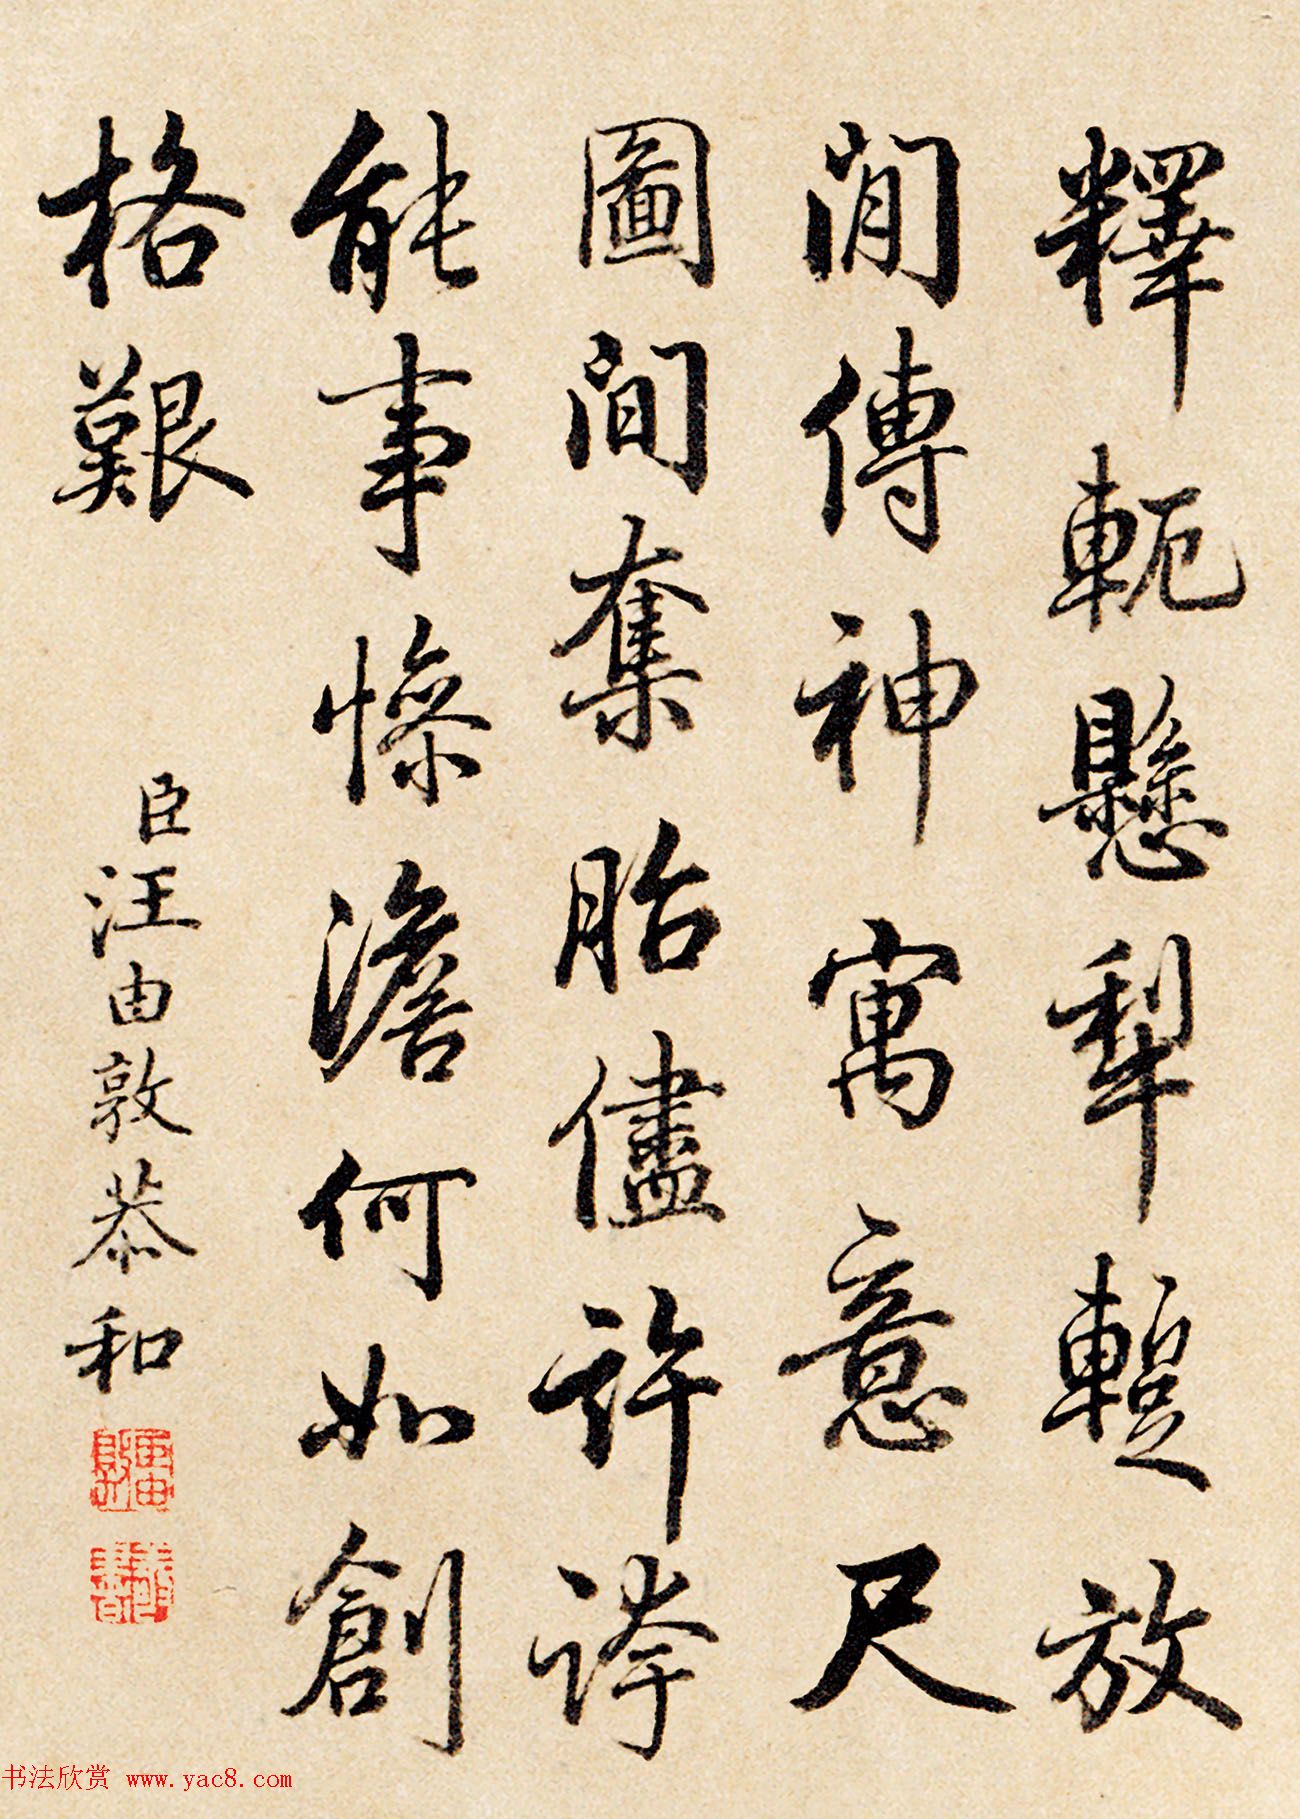 釋軛懸犁蹔放
閒傳神寓意尺
圖間奪胎儘許誇
能事慘澹何如創
格艱
臣汪由敦恭和
书法欣赏 www.yac8.com